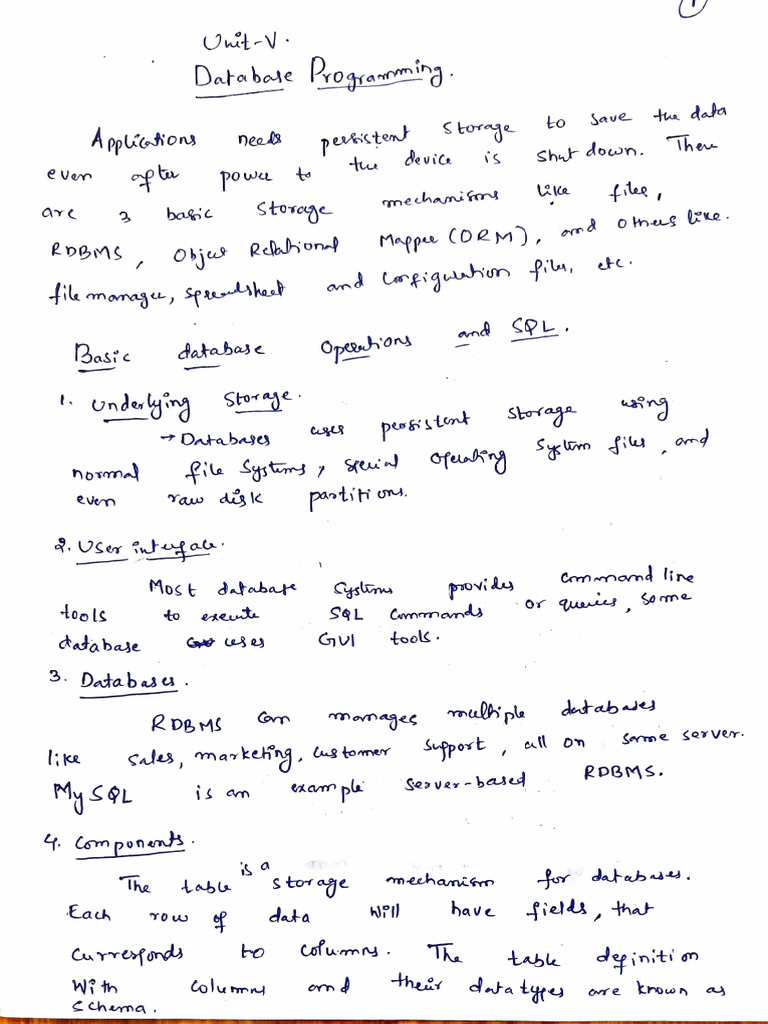 1
Unit-V.
Database Programming.
Applications needs persistent storage to save the data
even after power to the device is shut down. There
are 3 basic storage mechanisms like files,
RDBMS, Object Relational Mapper (ORM), and others like.
file manager, spreadsheet and configuration files, etc.
Basic database Operations and SQL.
1. Underlying Storage.
→ Databases uses persistent storage using
normal file systems, special operating system files, and
even raw disk partitions.
2. User interface.
Most database systems provides command line
tools to execute SQL commands or queries, some
database uses GUI tools.
3. Databases.
RDBMS can manages multiple databases
like sales, marketing, customer support, all on same server.
MySQL is an example server-based RDBMS.
4. Components.
The table is a storage mechanism for databases.
Each row of data will have fields, that
curresponds to columns. The table definition
With columns and their datatypes are known as
schema.